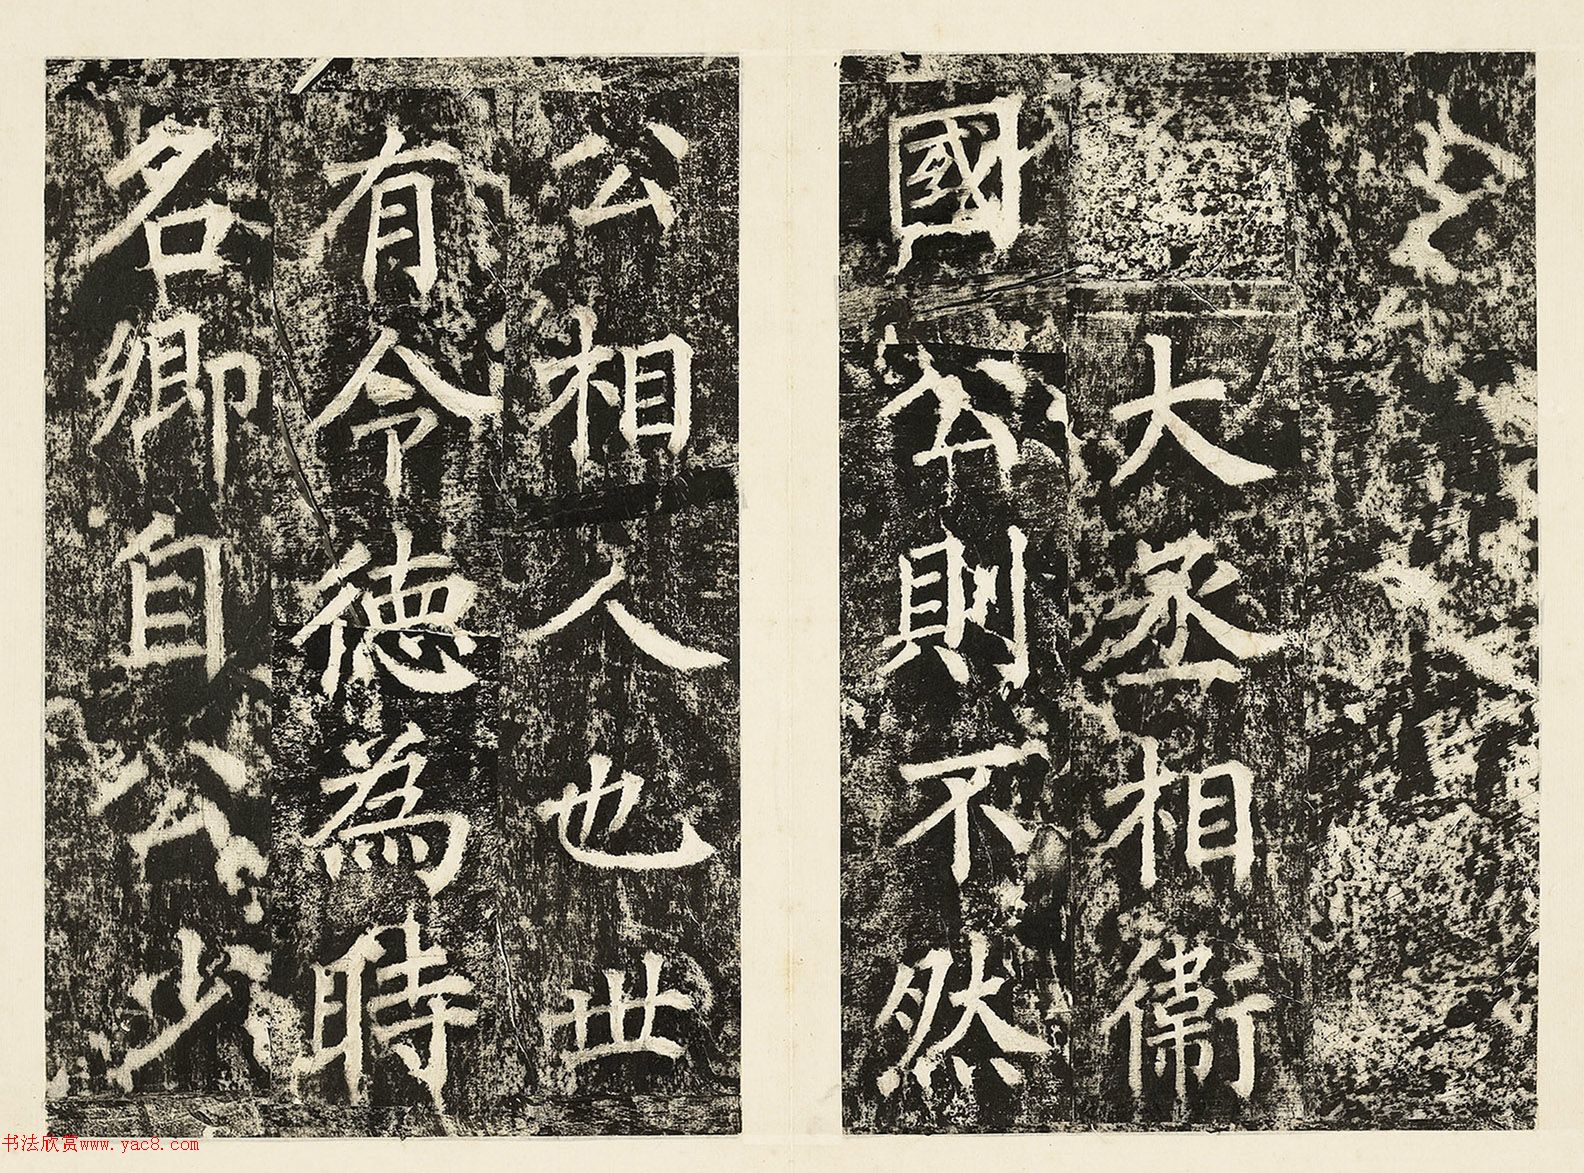 大丞相衛
國公則不然
公相人也世
有令德為時
名卿自公少
书法欣赏www.yac8.com